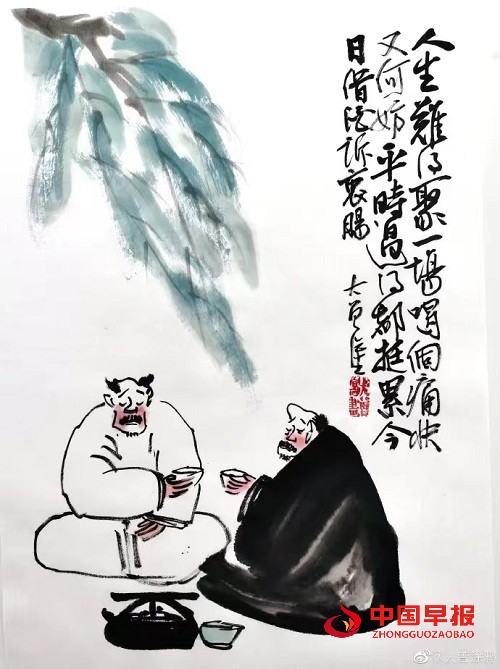 人生難得聚一場喝個痛快
又何妨平時過得都挺累今
日借酒訴衷腸
中国早报
ZHONGGUOZAOBAO